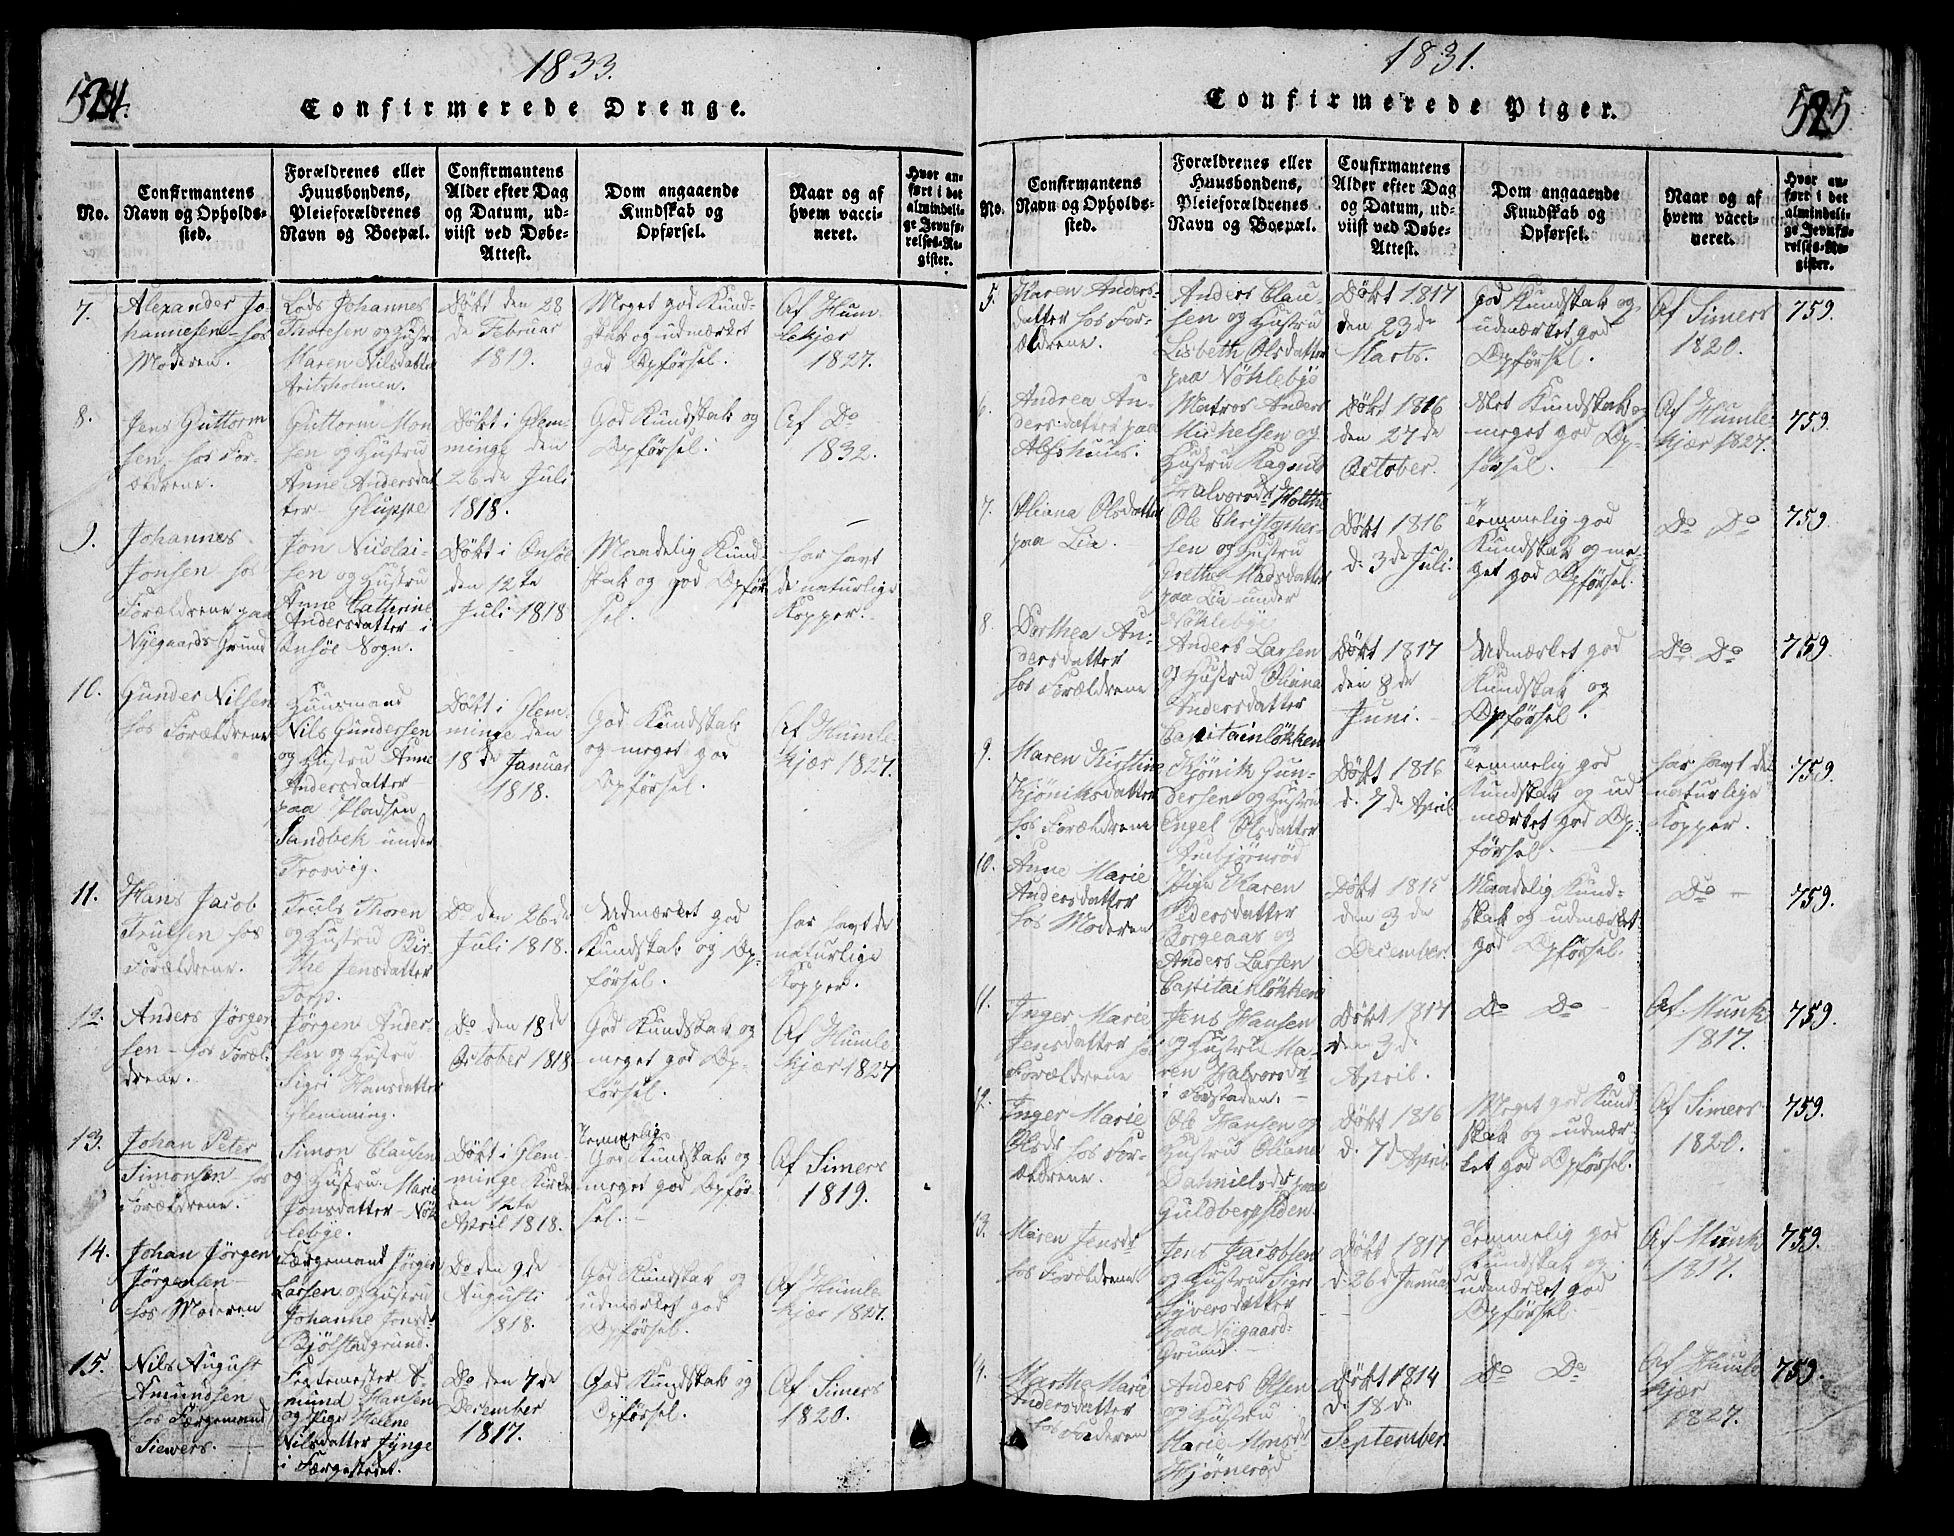 1833.
524.
Confirmerede Drenge.
No.
Confirmantens
Navn og Opholds-
sted.
Forældrenes eller
Huusbondens,
Pleieforældrenes
Navn og Boepæl.
Confirmantens
Alder efter Dag
og Datum, ud-
viist ved Døbe-
Attest.
Dom angaaende
Kundskab og
Opførsel.
Naar og af
hvem vacci-
neret.
Hvor an-
ført i det
almindeli-
ge Jevnfø-
relses-Re-
gister.
7.
Alexander Jo-
hannesen hos
Moderen.
Lods Johannes
Thoresen og Hustru
Maren Nilsdatter
Døbt den 28
de Februar
1819.
Meget god Kund-
skab og udmærket
god Opførsel.
Af Hum-
lekjær
1827.
8.
Jens Guttorm
sen hos For-
ældrene.
Guttorm Mon
sen og Hustru
Anne Andersdat
ter Gluppe
Døbt i Glem-
minge den
26de Juli
1818.
God Kundskab og
Opførsel.
Af Do
1832.
9.
Johannes
Jonsen hos
Forældrene paa
Nyegaards Grund
Jon Nicolai-
sen og Hustru
Anne Catherine
Andersdatter i
Onsøe Sogn.
Døbt i Onsøe
den 12te
Juli 1818
Maadelig Kund-
skab og god Opfør
sel.
har havt
de naturlige
Kopper.
10.
Gunder Nilsen
hos Forældrene
Huusmand
Nils Gundersen
og Hustru Anne
Andersdatter
paa Pladsen
Sandbek under
Trosvig.
Døbt i Glem-
minge den
18de Januar
1818.
God Kundskab
og meget god
Opførsel.
Af Humle-
kjær 1827.
11.
Hans Jacob
Trulsen hos
Forældrene.
Truls Thoren
og Hustru Bir-
the Jensdatter
Torp.
Do den 26de
Juli 1818.
Udmærket god
Kundskab og Op-
førsel.
har havt de
naturlige
Kopper.
12.
Anders Jørgen
sen hos Foræl-
drene.
Jørgen Ander-
sen og Hustru
Sigri Hansdatter
Glemming.
Do den 18de
October 1818
God Kundskab og
meget god Op-
førsel.
Af Humle-
kjær 1827
13.
Johan Peter
Simonsen hos
Forældrene.
Simon Clausen
og Hustru Marie
Jonsdatter Nøh
lebye.
Døbt i Glem-
minge Kirke
den 12te
April 1818.
Temmelig
God Kundskab og
meget god Opfør
sel.
Af Simers
1819.
14.
Johan Jørgen
Jørgensen
hos Moderen
Færgemand Jørgen
Larsen og Hustru
Johanne Jonsd.
Bjølstadgrund.
Do den 9de
Augusti
1818.
God Kundskab og
udmærket god
Opførsel.
Af Humle-
kjær 1827.
15.
Nils August
Amundsen
hos Færgemand
Siewers.
mund Hansen
og Pige Helene
Nilsdatter Tynge
i Færgestedet.
Do den 7de
December
1817.
God Kundskab og
Opførsel.
Af Simers
1820.
1831.
525
Confirmerede Piger.
No.
Confirmantens
Navn og Opholds-
sted.
Forældrenes eller
Huusbondens,
Pleieforældrenes
Navn og Boepæl.
Confirmantens
Alder efter Dag
og Datum, ud-
viist ved Døbe-
Attest.
Dom angaaende
Kundskab og
Opførsel.
Naar og af
hvem vacci-
neret.
Hvor an-
ført i det
almindeli-
ge Jevnfø-
relses-Re-
gister.
5.
Karen Anders-
datter hos For-
ældrene.
Anders Clau-
sen og Hustru
Lisbeth Olsdatter
paa Nøhlebye
Døbt 1817
den 23de
Marts.
God Kundskab og
udmærket god
Opførsel.
Af Simers
1820.
759.
6.
Andrea An-
dersdatter paa
Alfshuus.
Matros Anders
Michelsen og
Hustru Ragnild
Halvorsd. Holthe
Døbt 1816
den 27de
October.
Slet Kundskab og
meget god Op-
førsel.
Af Humle-
kjær 1827.
759.
7.
Oliana Olsdatter
paa Lia.
Ole Christopher-
sen og Hustru
Grethe Madsdatter
paa Lia under
Nøhlebye
Døbt 1816
d. 3de Juli.
Temmelig god
Kundskab og me-
get god Opførsel.
Do Do
759.
8.
Dorthea An-
dersdatter
hos Forældrene
Anders Larsen
og Hustru Oliana
Andersdatter
Capitainløkken
Døbt 1817
den 8de
Juni.
Udmærket god
Kundskab og
Opførsel.
Do Do
759.
9.
Maren Kirstine
Kjöniksdatter
hos Forældrene
Kjönik Gun-
dersen og Hustru
Engel Olsdatter
Ambjørnrød
Døbt 1816
d. 7de April
Temmelig god
Kundskab og ud
mærket god Op-
førsel.
har havt de
naturlige
Kopper.
759.
10.
Anne Marie
Andersdatter
hos Moderen
Pige Karen
Pedersdatter
Borgeaas og
Anders Larsen
Capitainløkken
Døbt 1815
den 3de
December.
Maadelig Kund-
skab og udmærket
god Opførsel.
Do
759.
11.
Inger Marie
Jensdatter hos
Forældrene
Jens Hansen
og Hustru Ma-
ren Halvorsdr
i Forstaden.
Døbt 1817
den 3de
April.
Do Do
Af Munk
1817.
759.
12.
Inger Marie
Olsdr hos For-
ældrene.
Ole Hansen og
Hustru Oliane
Dahnielsdr paa
Guldbergsiden.
Døbt 1816
d. 7de April
Meget god Kund
skab og udmær-
ket god Opførsel.
Af Simers
1820.
759.
13.
Maren Jensdr
hos Forældrene
Jens Jacobsen
og Hustru Siger
Syversdatter
paa Nyegaard-
Grund.
Døbt 1817
d. 26de Januar
Temmelig god
Kundskab og
udmærket god
Opførsel.
Af Munk
1817.
759.
14.
Martha Marie
Andersdatter
hos Faderen
Anders Olsen
og Hustru
Døbt 1814
d. 18de
September.
Do Do
Af Humle
kjær
1827.
759.